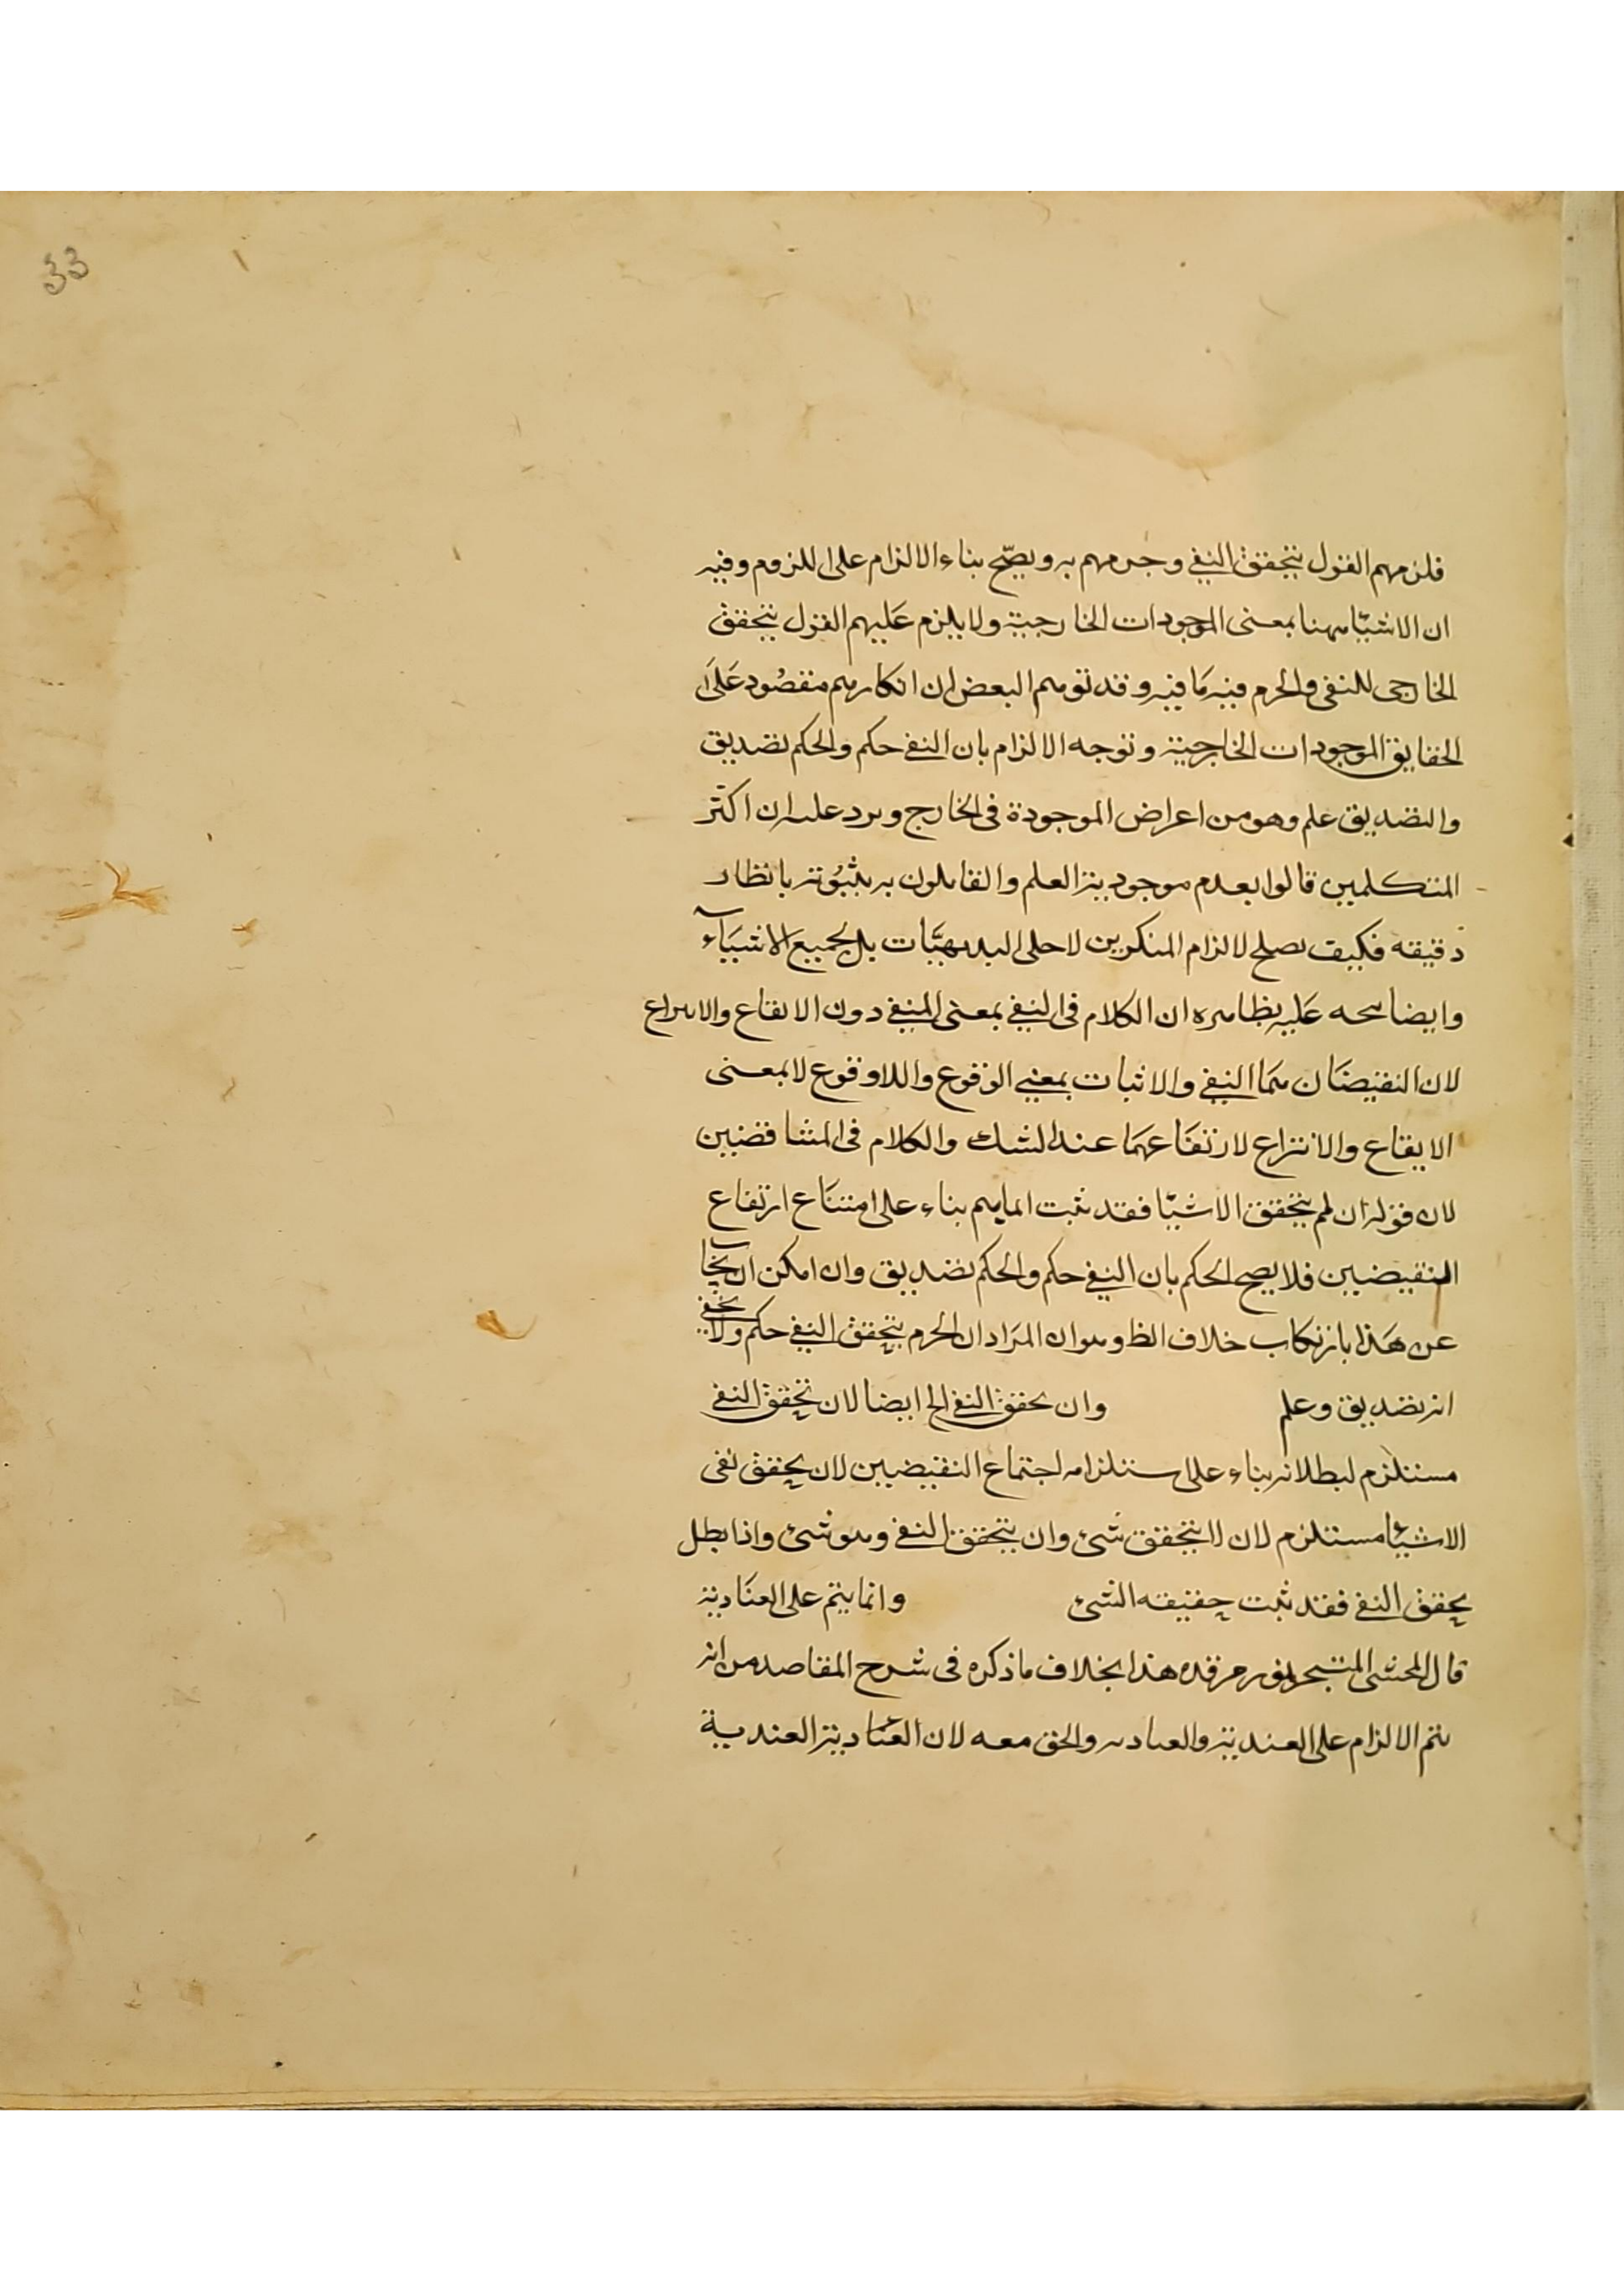 33
فلزمهم القول بتحقق النفى وجزمهم به ويصحّ بناء الالزام على اللزوم وفيه
ان الاشيّا ههنا بمعنى الموجودات الخارجية ولا يلزم عليهم القول بتحقق
الخارجى للنفى والجزم فيه مَا فيه وقد توهم البعض ان انكارهم مقصُود عَلَى
الحقايق الموجودات الخارجية وتوجه الالزام بان النفى حكم والحكم تصديق
والتصديق علم وهو من اعراض الموجودة فى الخارج ويرد عليه ان اكثر
المتكلمين قالوا بعدم موجودية العلم والقايلون به يثبُوته بانظار
دقيقه فكيف يصلح لالزام المنكرين لاجلى البديهيّات بل لجميع الاشيَآء
وايضا يتجه عَليه بظاهره ان الكلام فى النفى بمعنى المنفى دون الايقاع والانتزاع
لان النقيضَان همَا النفى والاثبات بمعنى الوقوع واللاوقوع لا بمعنى
الايقاع والانتزاع لارتفَاعهمَا عند الشك والكلام فى المتناقضين
لان قوله ان لم يتحقق الاشيّا فقد ثبت انما يتم بناء على امتنَاع ارتفاع
النقيضين فلا يصح الحكم بان النفى حكم والحكم تصديق وان امكن ان يجَآب
عن هَذا بارتكاب خلاف الظ وهو ان المرَاد ان الجزم بتحقق النفى حكم ولا يخفى
انه تصديق وعلم وان تحقق النفى الخ ايضا لان تحقق النفى
مستلزم لبطلانه بناء على استلزامه اجتماع النقيضين لان تحقق نفى
الاشيَا مستلزم لان لا يتحقق شئ وان يتحقق النفى وهو شئ واذا بطل
تحقق النفى فقد ثبت حقيقه الشئ وانما يتم على العنَادية
قال المحشى المتبحر نور مرقده هذا بخلاف ما ذكره فى شرح المقاصد من انه
يتم الالزام على العندية والعنادية والحق معه لان العنَادية العندية